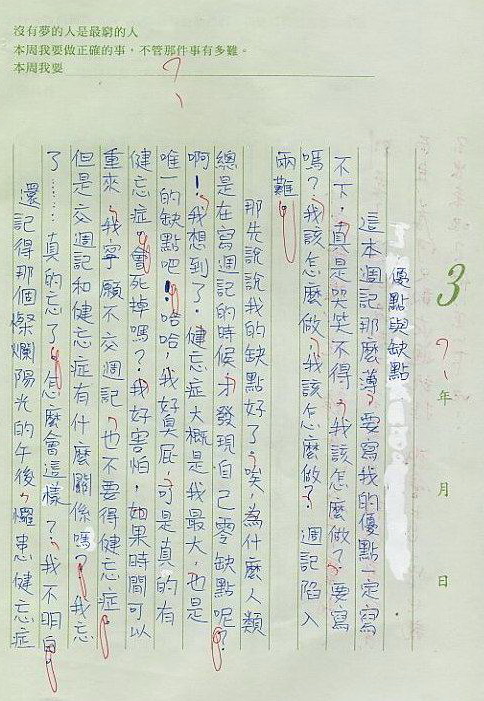 沒有夢的人是最窮的人
本周我要做正確的事，不管那件事有多難。
本周我要
3
年　月　日
優點與缺點
這本週記那麼薄，要寫我的優點一定寫
不下，真是哭笑不得，我該怎麼做？要寫
嗎？我該怎麼做，我該怎麼做？週記陷入
兩難。
那先說說我的缺點好了，唉，為什麼人類
總是在寫週記的時候，才發現自己零缺點呢？
啊！我想到了，健忘症大概是我最大，也是
唯一的缺點吧！哈哈，我好臭屁，可是真的有
健忘症，會死掉嗎？我好害怕，如果時間可以
重來，我寧願不交週記，也不要得健忘症。
但是交週記和健忘症有什麼關係嗎？我忘
了……真的忘了，怎麼會這樣？，我不明白。
還記得那個燦爛陽光的午後，罹患健忘症